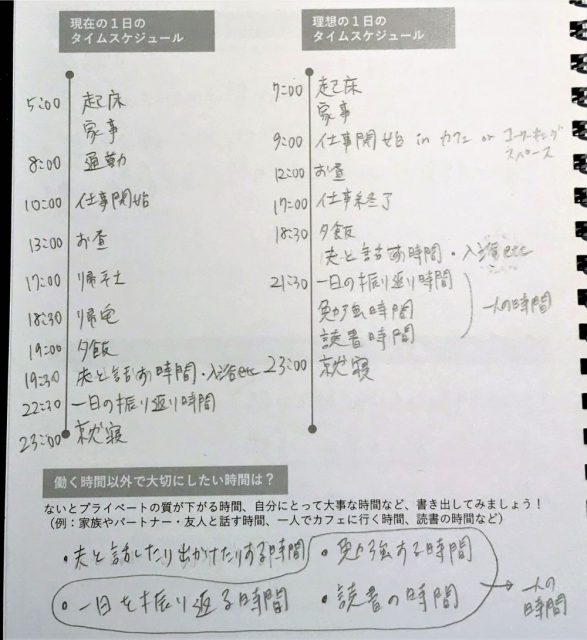 現在の1日の
タイムスケジュール
5:00 起床
家事
8:00 通勤
10:00 仕事開始
13:00 お昼
17:00 帰社
18:30 帰宅
19:00 夕飯
19:30 夫と話す時間・入浴etc
22:30 一日の振り返り時間
23:00 就寝
理想の1日の
タイムスケジュール
7:00 起床
家事
9:00 仕事開始 in カフェ or コワーキング
スペース
12:00 お昼
17:00 仕事終了
18:30 夕飯
夫と話す時間・入浴etc
21:30 一日の振り返り時間
勉強時間
読書時間
一人の時間
23:00 就寝
働く時間以外で大切にしたい時間は?
ないとプライベートの質が下がる時間、自分にとって大事な時間など、書き出してみましょう!
(例:家族やパートナー・友人と話す時間、一人でカフェに行く時間、読書の時間など)
・夫と話したり出かけたりする時間
・勉強する時間
・一日を振り返る時間
・読書の時間
→ 一人の
時間